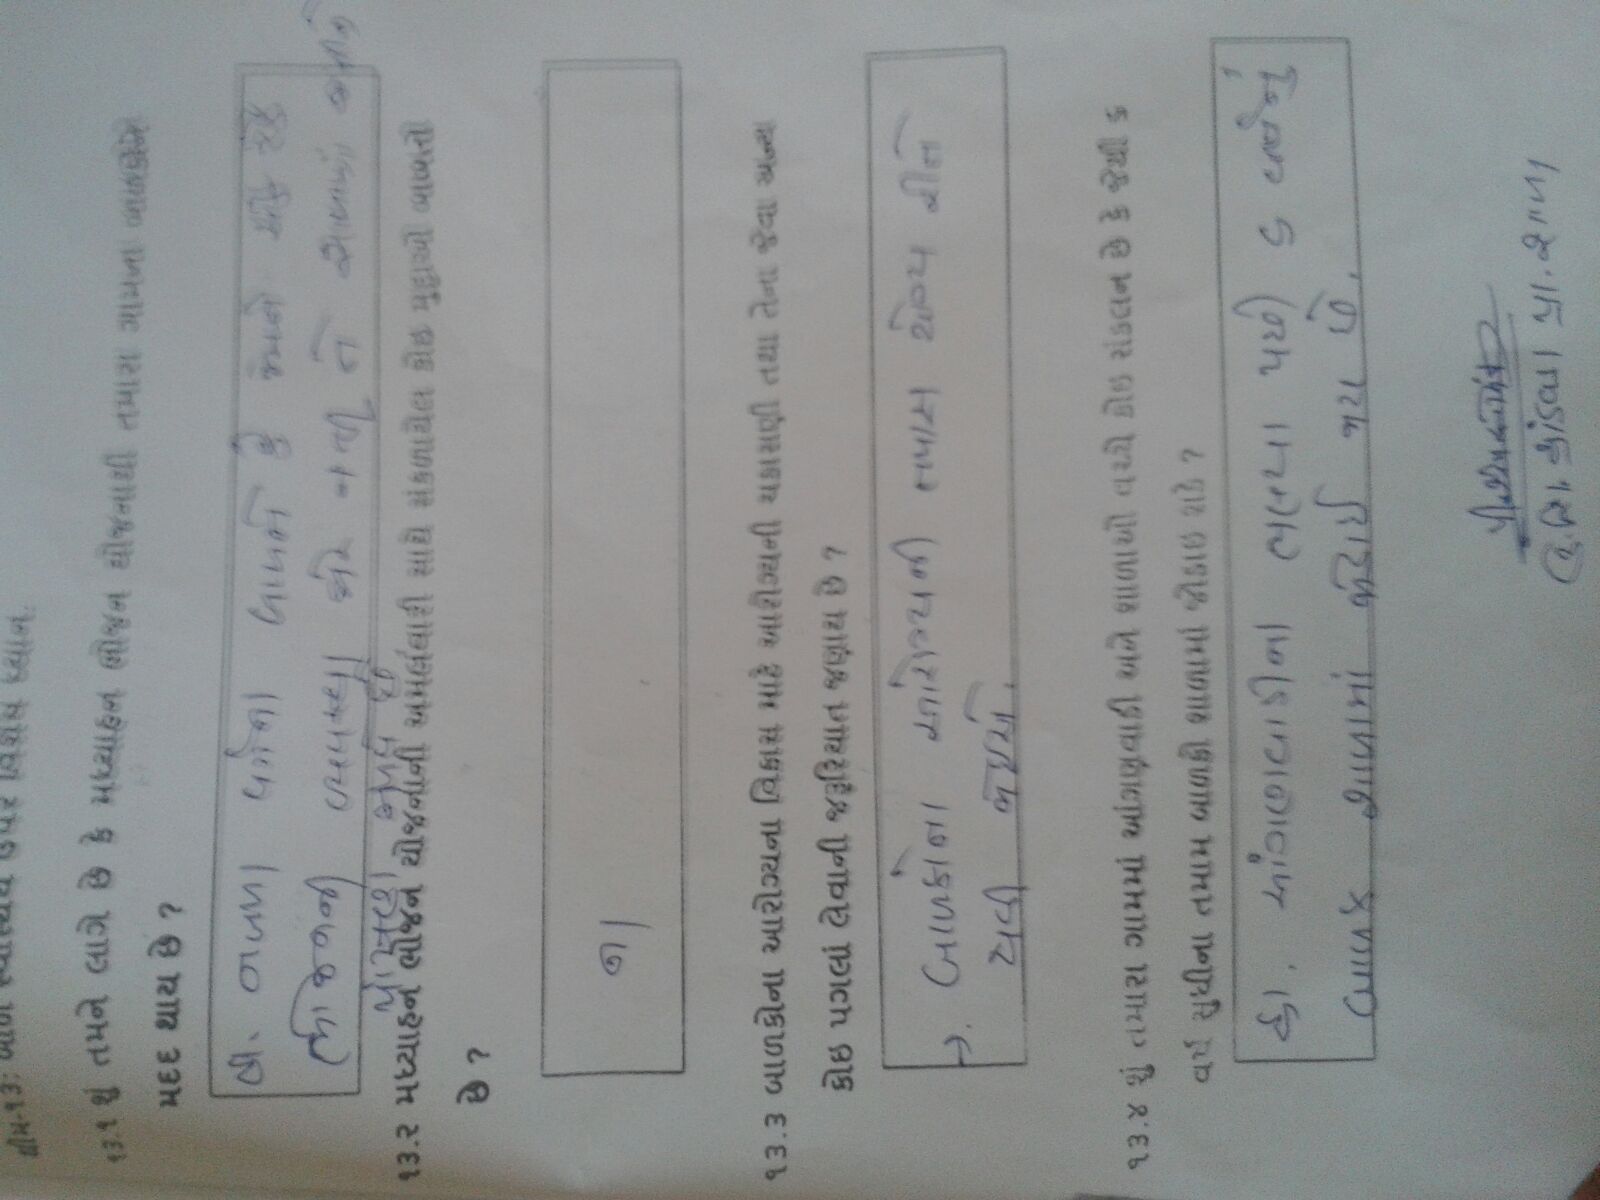 થીમ-૧૩: બાળ સ્વાસ્થ્ય ઉપર વિશેષ ધ્યાન.
૧૩.૧ શું તમને લાગે છે કે મધ્યાહન ભોજન યોજનાથી તમારા ગામના બાળકોને
મદદ થાય છે ?
વર્ગના બાળકો છે જેમને
ભોજનની વ્યવસ્થા તો શાળામાં
પોષણ મળે છે
૧૩.૨ મધ્યાહન ભોજન યોજનાની અમલવારી સાથે સંકળાયેલ કોઇ મુદ્દાઓ બાબતો
છે ?
ના
૧૩.૩ બાળકોના આરોગ્યના વિકાસ માટે આરોગ્યની ચકાસણી તથા તેના જેવા અન્ય
કોઇ પગલાં લેવાની જરૂરિયાત જણાય છે ?
→. બાળકોના આરોગ્યની તપાસ યોગ્ય રીતે
થવી જોઇએ.
૧૩.૪ શું તમારા ગામમાં આંગણવાડી અને શાળાઓ વચ્ચે કોઇ સંકલન છે કે જેથી ૬
વર્ષ સુધીના તમામ બાળકો શાળામાં જોડાઇ શકે ?
હા. આંગણવાડીના ભણ્યા પછી ૬ વર્ષનું
બાળક શાળામાં જોડાઈ જાય છે.
પ્રા. શાળા